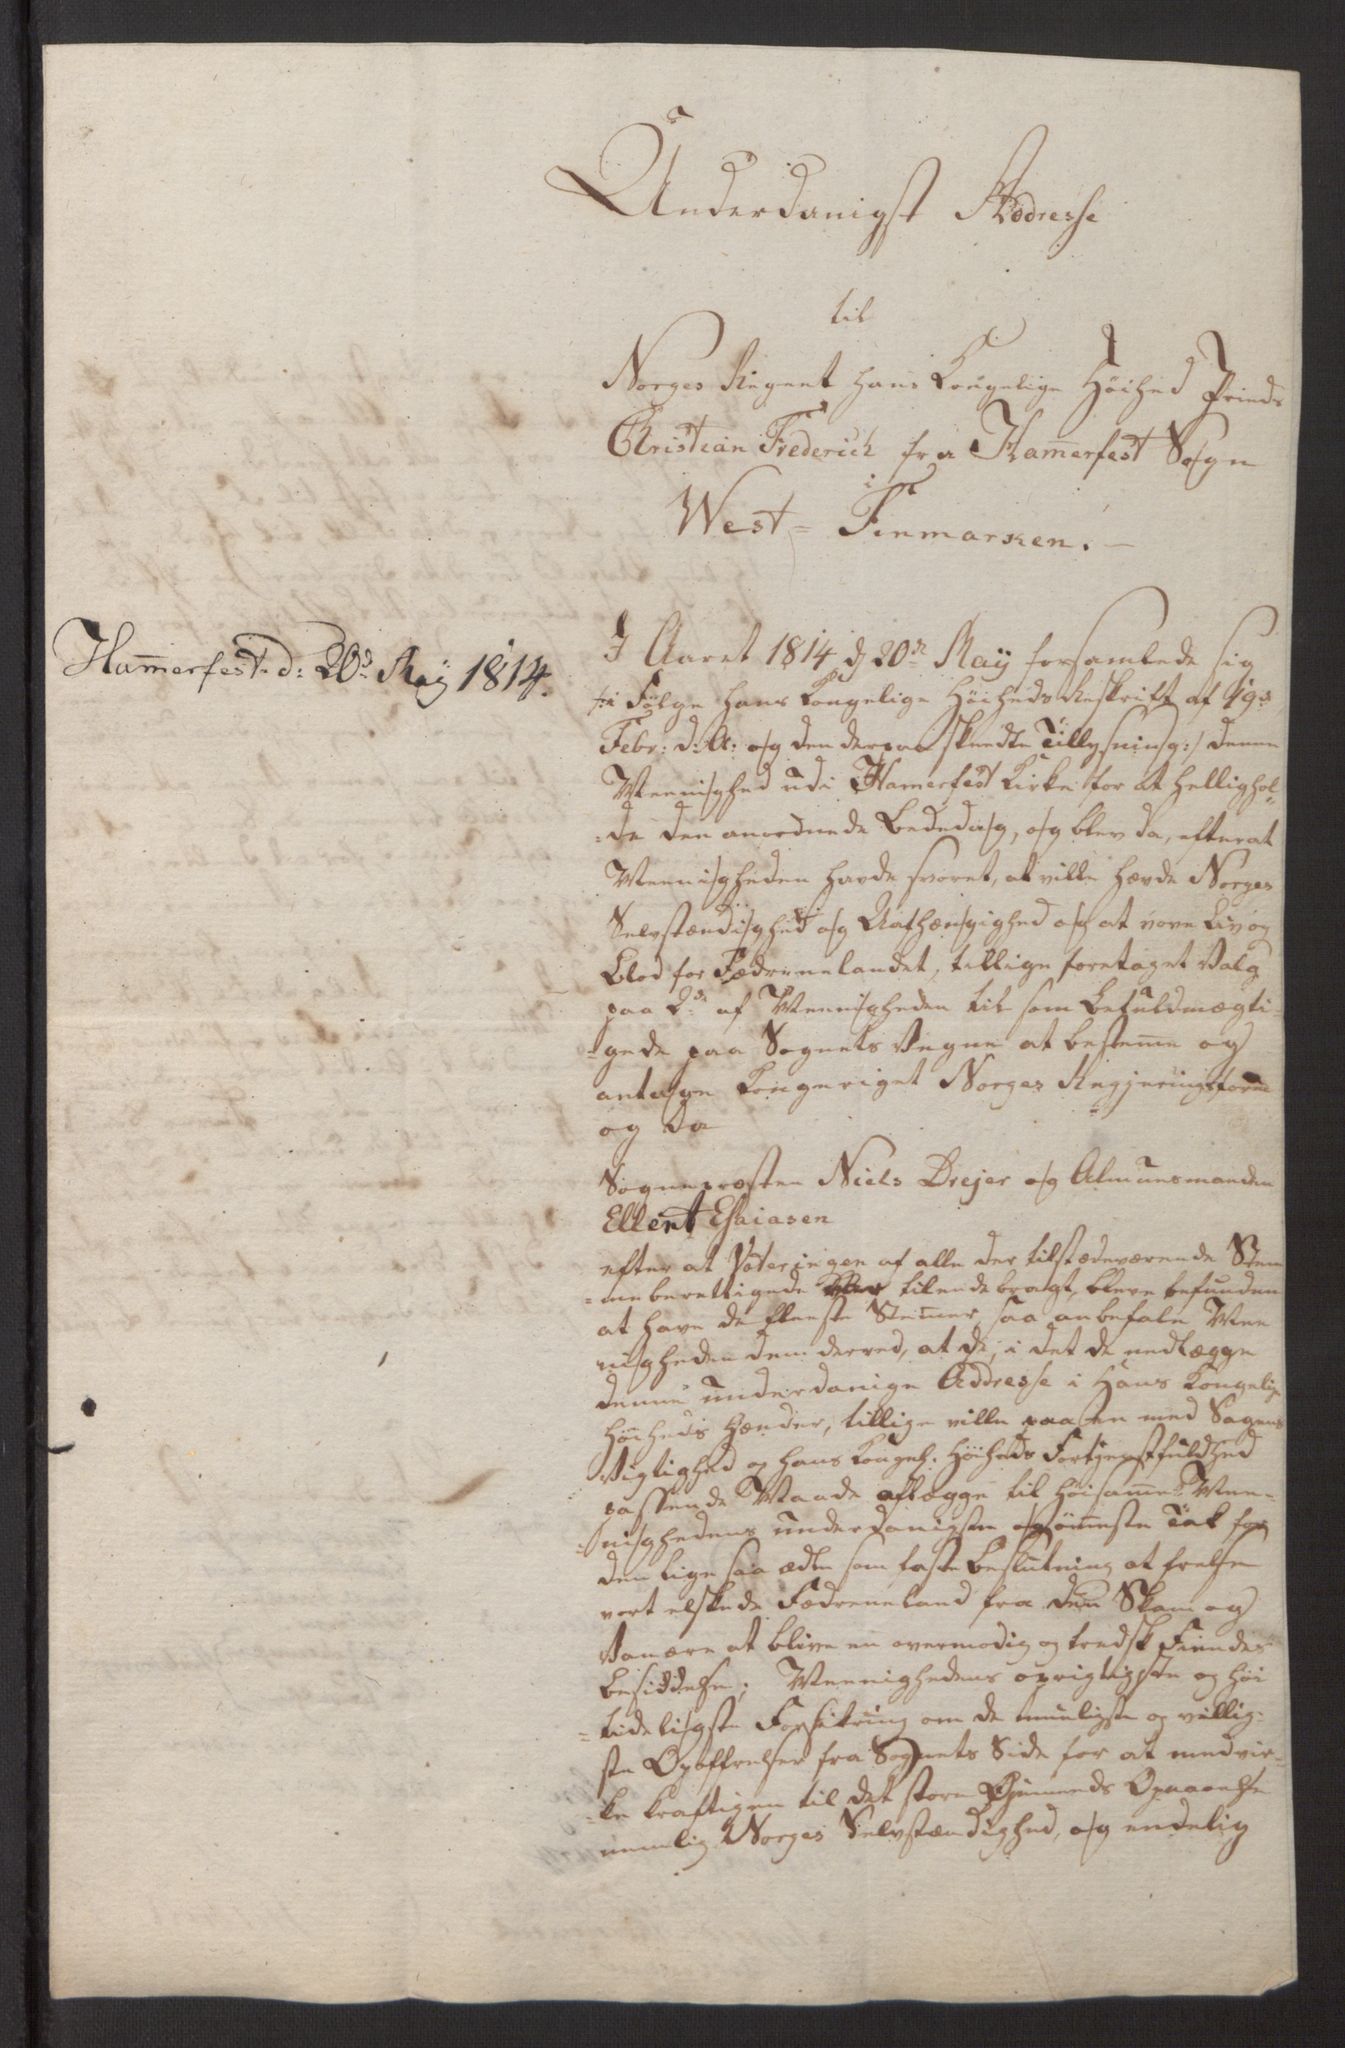 Underdanigst Addresse
til
Norges Regent Hans Kongelige Höihed Prinds
Christian Frederich fra Ham̄erfest Sogn
i
West-Finmarken.
Ham̄erfest d: 20de May 1814.
I Aaret 1814 d 20de May forsamlede sig
/:i Fölge Hans Kongelige Höiheds Reskript af 19de
Febr: d: A: og den derpaa skeedte Tillysning:/ denne
Meenighed udi Ham̄erfest Kirke for at hellighol-
-de den anordnede Bededag, og blev da, efterat
Meenigheden havde svoret, at ville hævde Norges
Selvstændighed og Uafhængighed og at vove Liv og
Blod for Fædrenelandet, tillige foretaget Valg
paa 2de af Meenigheden til som Befuldmægti-
-gede paa Sognets Vegne at bestem̄e og
antage Kongeriget Norges Regjeringsform
og da
Sognepræsten Niels Drejer og Almuesmanden
Ellert Esaiasen
efter at Voteringen af alle der tilstædeværende Stem-
-meberettigede var tilendebragt, bleve befunden
at have de fleeste Stem̄er, saa anbefale Mee
nigheden dem derved, at de, i det de nedlægge
denne underdanige Addresse i Hans Kongelige
Höiheds Hænder, tillige ville paa en med Sagens
Vigtighed og Hans Kongel. Höiheds Fortjenstfuldhed
passende Maade aflægge til Höisam̄e Mee-
-nighedens underdanigste og öm̄este Tak for
den lige saa ædle som faste Beslutning at frelse
vort elskede Fædreneland fra den Skam og
Vanære at blive en overmodig og tredsk Fiendes
Besiddelse; Meenighedens oprigtigste og höi
-tideligste Forsikring om de mueligste og villig-
ste Opoffrelser fra Sognets Side for at medvir-
-ke kraftigen til det store Öjemeds Opnaaelse
nemlig Norges Selvstændighed, og endelig